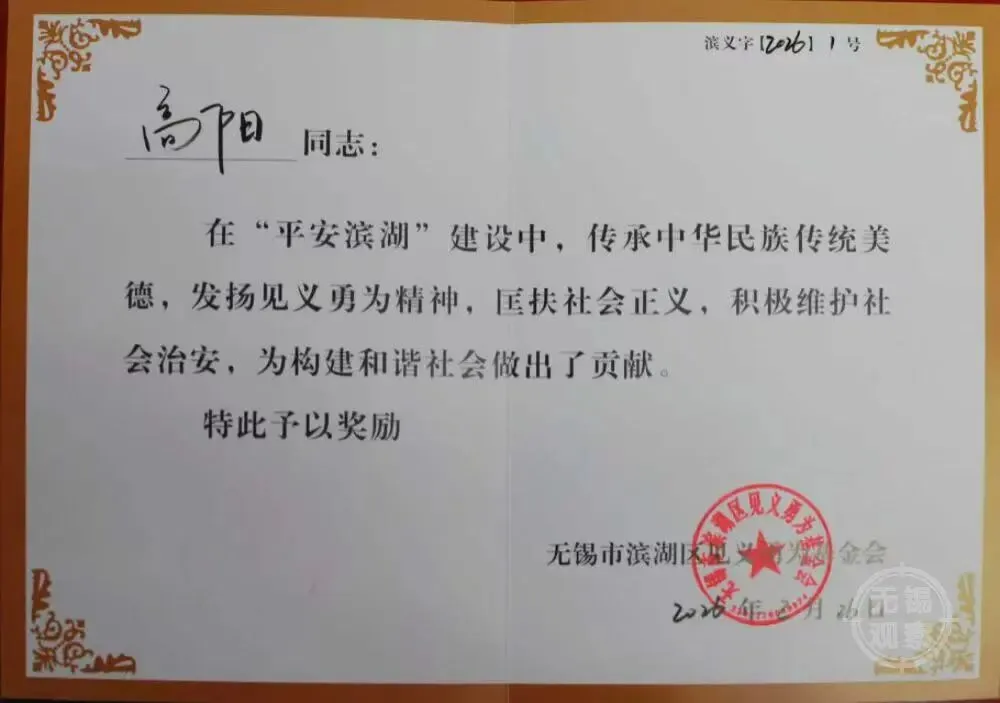 滨义字【2026】1号
高阳同志：
在“平安滨湖”建设中，传承中华民族传统美
德，发扬见义勇为精神，匡扶社会正义，积极维护社
会治安，为构建和谐社会做出了贡献。
特此予以奖励
无锡市滨湖区见义勇为基金会
无锡市滨湖区见义勇为基金会
2026年2月26日
无锡
观察